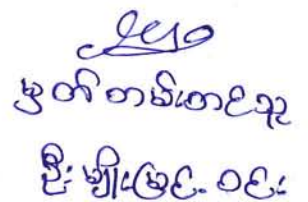 မှတ်တမ်းတင်သူ
ဦးမျိုးမြင့်ဝင်း